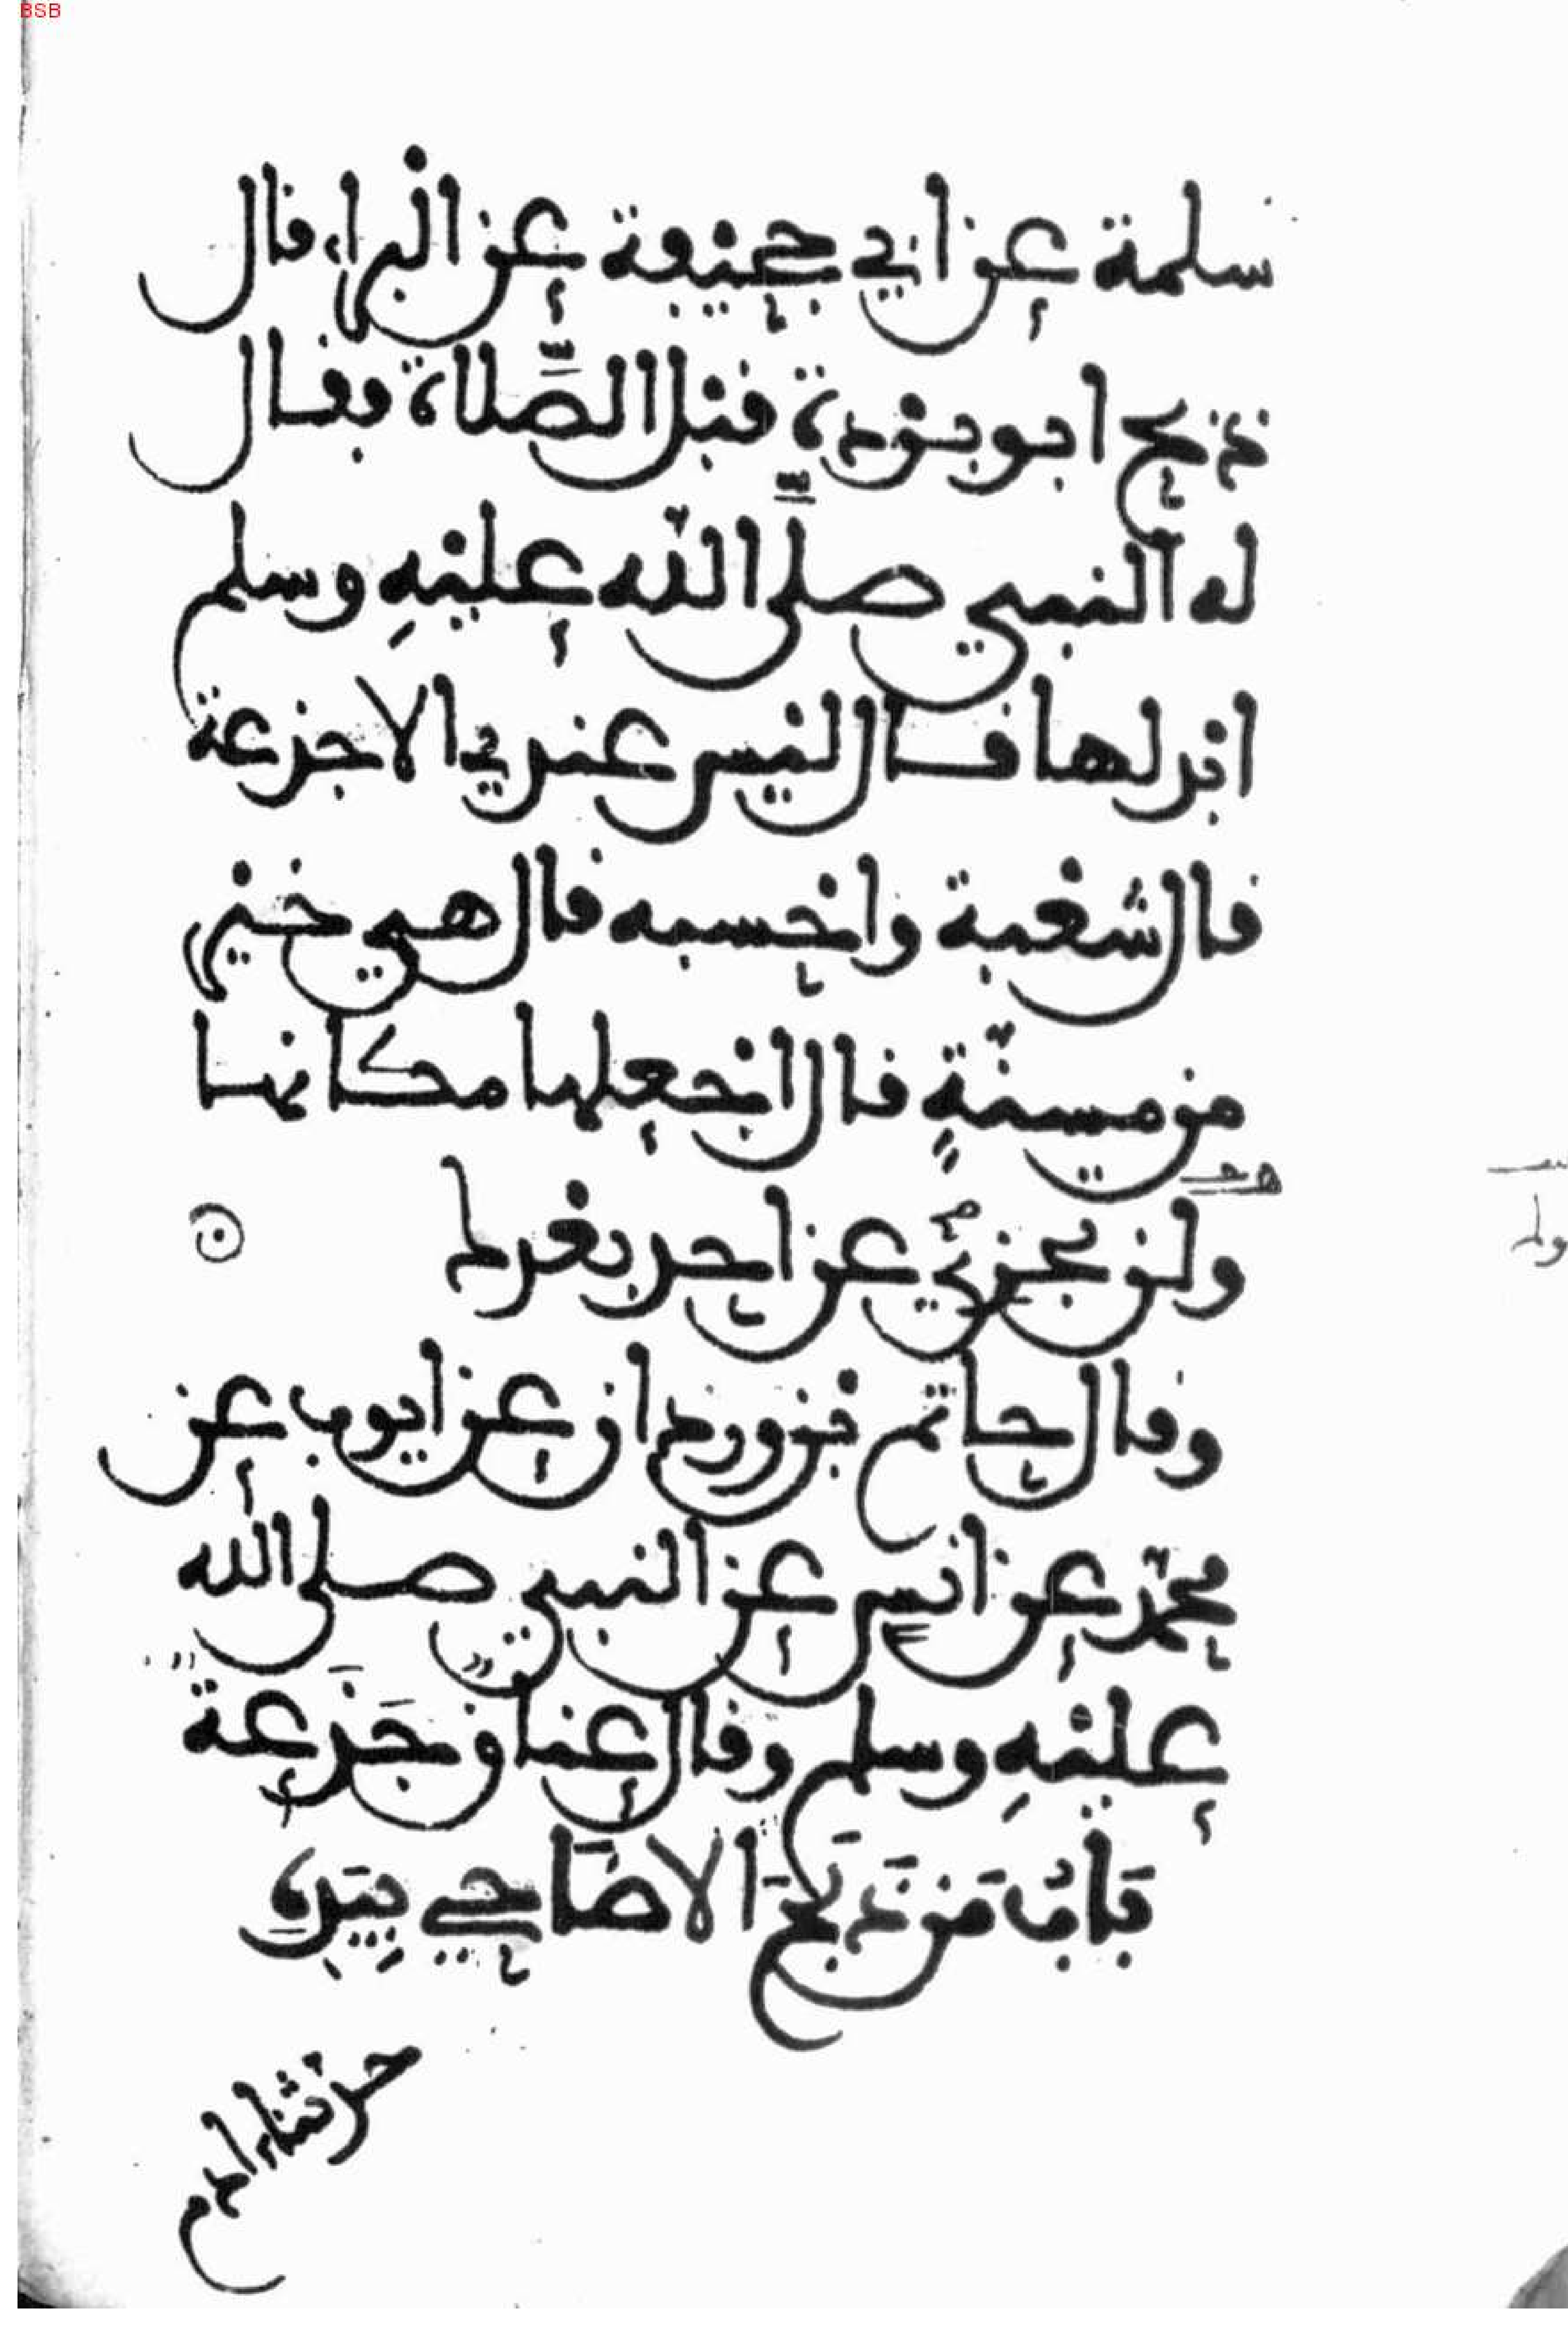 BSB
سلمة عن ابي جحيفة عن البراء قال
ذبح ابو بردة قبل الصّلاة فقال
له النبي صلَّى اللّه عليْهِ وسلم
ابدلها قال ليس عندي الا جذعة
قال شعْبة واحْسبه قال هي خيْر
من مسنّةٍ قال اجْعلها مكانها
ولن تجزئ عن احد بعْدك
وقال حاتم بْن وردان عن ايوب عن
محمّد عن انسٍ عن النبي صلى الله
عليْهِ وسلم وقال عناق جَذَعة
بَابُ مَن ذَبحَ الاضَاحي بِيَدِه
حدثنا ادم